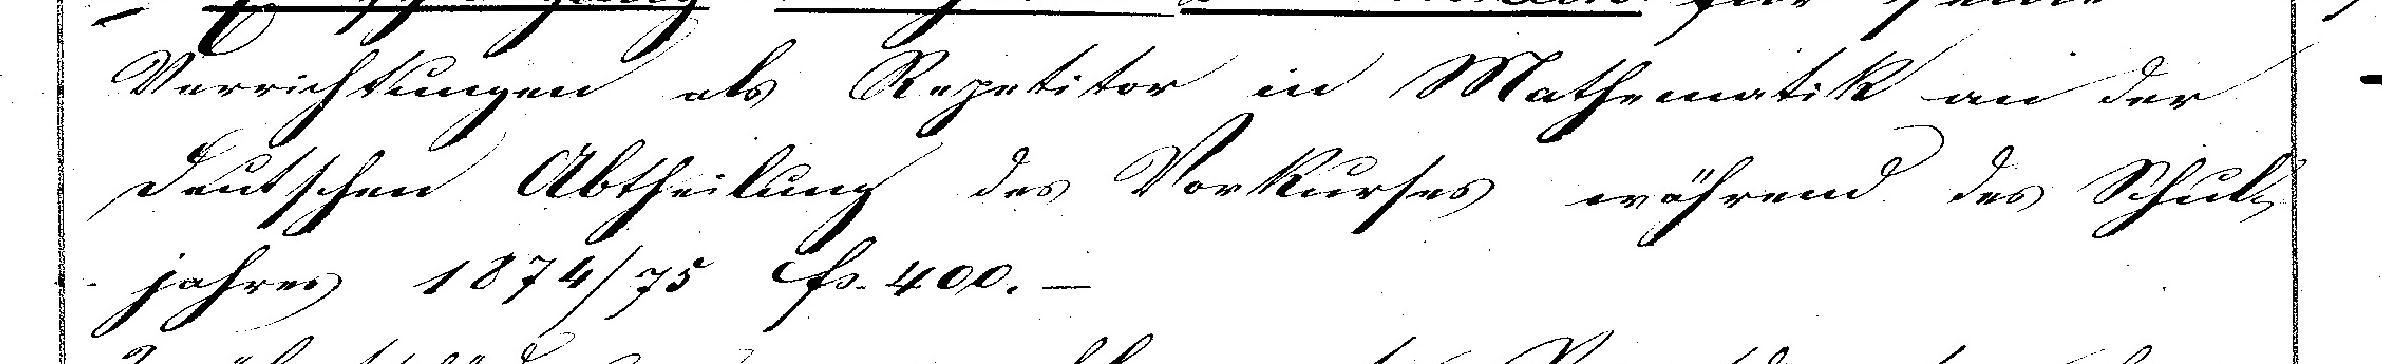 für seine
Verrichtungen als Repetitor in Mathematik an der
deutschen Abtheilung des Vorkurses während des Schul-
jahres 1874/75 fs. 400. —